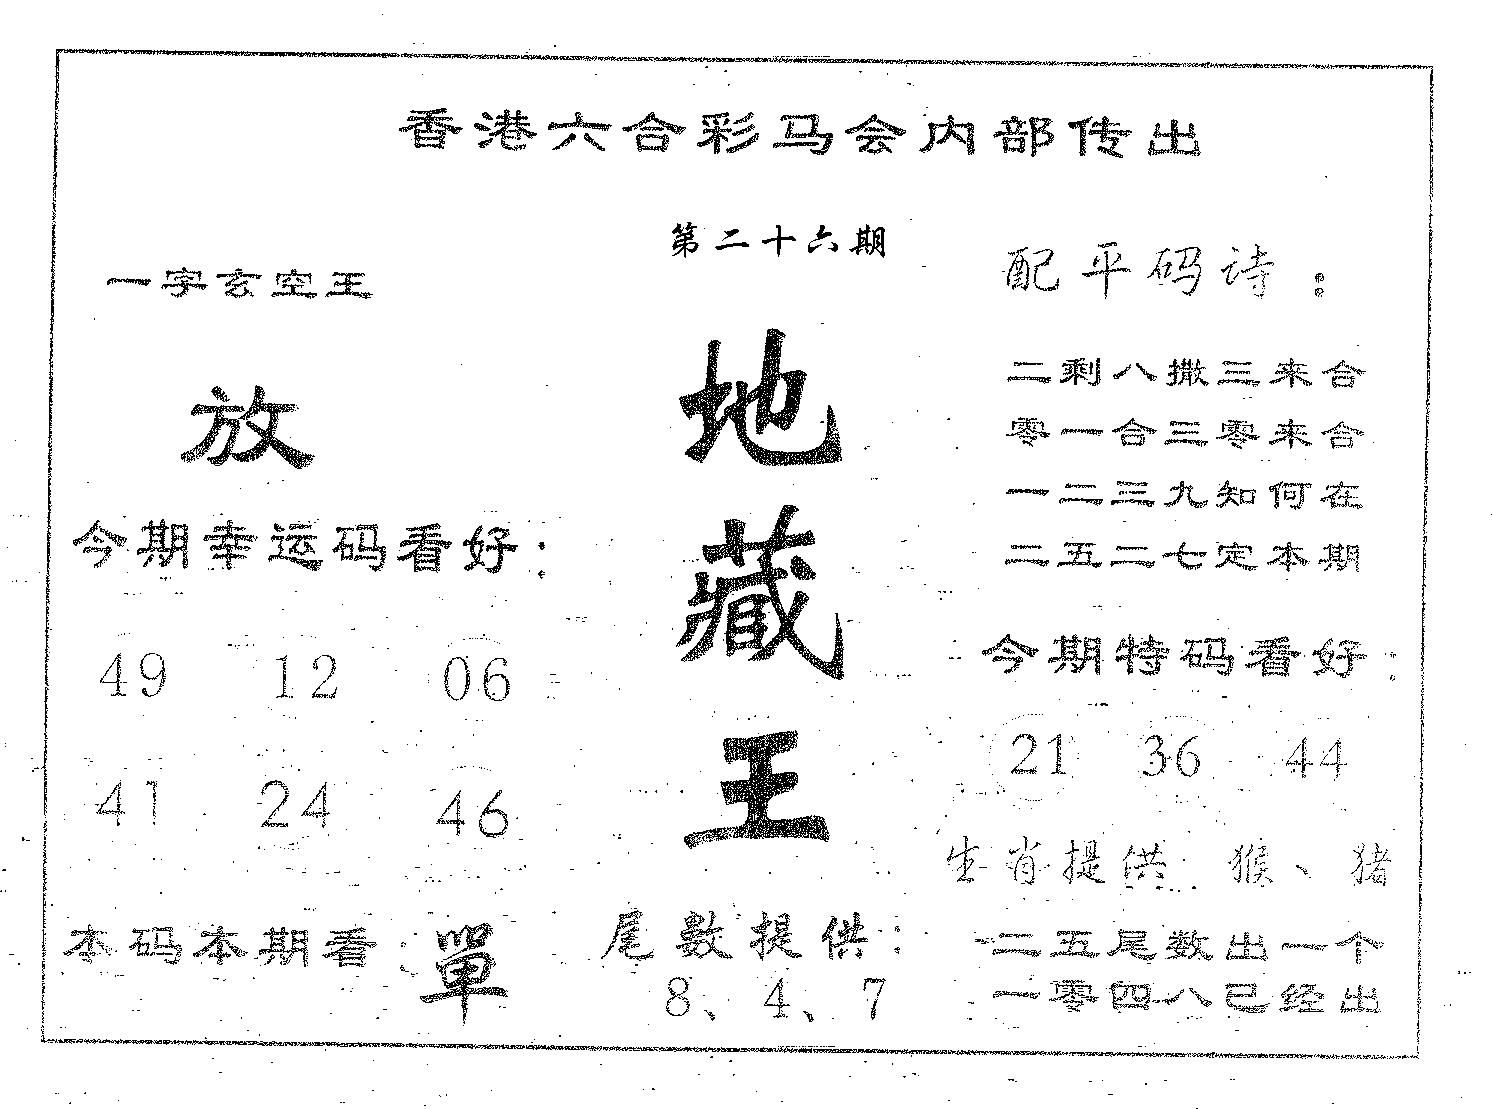 香港六合彩马会内部传出
第二十六期
一字玄空王
放
今期幸运码看好：
49 12 06
41 24 46
本码本期看：單
地
藏
王
尾數提供：
8、4、7
配平码诗：
二剩八撒三来合
零一合三零来合
一二三九知何在
二五二七定本期
今期特码看好：
21 36 44
生肖提供 猴、猪
二五尾数出一个
一零四八已经出